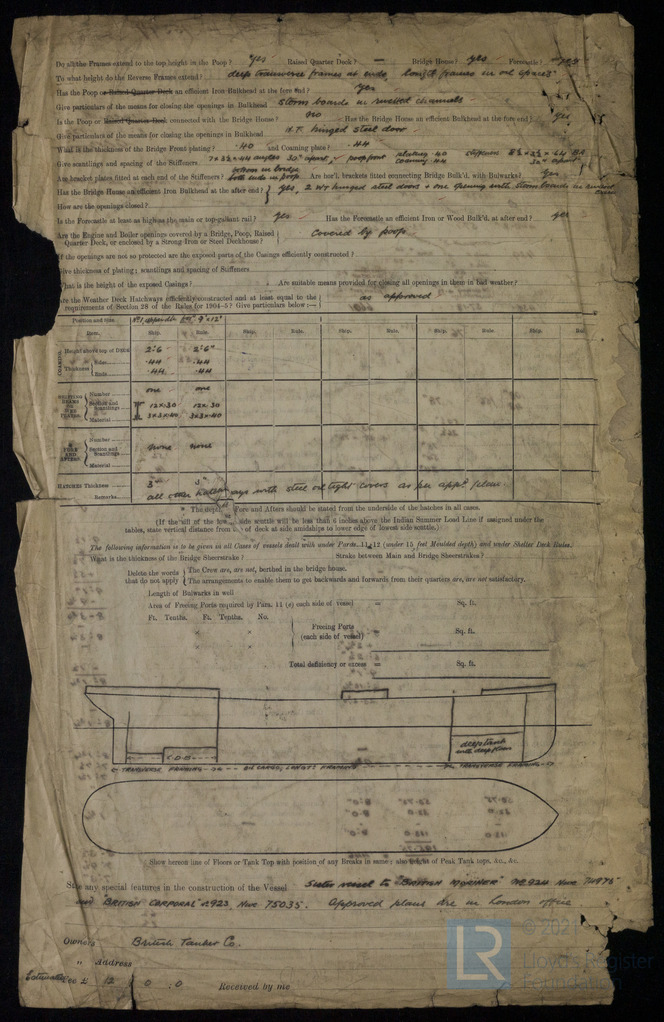 Do all the Frames extend to the top height in the Poop? Yes Raised Quarter Deck? — Bridge House? Yes Forecastle? Yes
To what height do the Reverse Frames extend? deep transverse frames at ends, longl frames in oil spaces
Has the Poop or Raised Quarter Deck an efficient Iron Bulkhead at the fore end? Yes
Give particulars of the means for closing the openings in Bulkhead storm boards in riveted channels
Is the Poop or Raised Quarter Deck connected with the Bridge House? No Has the Bridge House an efficient Bulkhead at the fore end? Yes
Give particulars of the means for closing the openings in Bulkhead W.T. hinged steel door
What is the thickness of the Bridge Front plating? .40 and Coaming plate? .44
Give scantlings and spacing of the Stiffeners. 7 x 3½ x .44 angles 30" apart, poop front plating .40 coaming .44 stiffeners
Are bracket plates fitted at each end of the Stiffeners? bottom in bridge both ends in poop Are hor'l. brackets fitted connecting Bridge Bulk'd. with Bulwarks? Yes
Has the Bridge House an efficient Iron Bulkhead at the after end? Yes, 2 WT hinged steel doors + one opening with storm boards in
How are the openings closed?
Is the Forecastle at least as high as the main or top-gallant rail? Yes Has the Forecastle an efficient Iron or Wood Bulk'd, at after end? Yes
Are the Engine and Boiler openings covered by a Bridge, Poop, Raised Quarter Deck, or enclosed by a Strong Iron or Steel Deckhouse? Covered by poop
If the openings are not so protected are the exposed parts of the Casings efficiently constructed?
Give thickness of plating; scantlings and spacing of Stiffeners
What is the height of the exposed Casings? Are suitable means provided for closing all openings in them in bad weather?
Are the Weather Deck Hatchways efficiently constructed and at least equal to the requirements of Section 28 of the Rules for 1904-5? Give particulars below:— as approved
Position and Size No 1, 9' x 12'
Item. Ship. Rule. Ship. Rule. Ship. Rule. Ship. Rule. Ship. Rul
COAMING Height above top of DECK 2'.6" 2'.6"
Thickness Sides .44 .44
Ends .44 .44
Number one one
Section and Scantlings 12 x .30 12 x .30
3 x 3 x .40 3 x 3 x .40
Material
FORE AND AFTERS. Number
Section and Scantlings none none
Material
HATCHES Thickness 3" 3"
Remarks all other hatchways with steel oil tight covers as per appd. plan.
* The depth of Fore and Afters should be stated from the underside of the hatches in all cases.
(If the sill of the lowest side scuttle will be less than 6 inches above the Indian Summer Load Line if assigned under the
tables, state vertical distance from of deck at side amidships to lower edge of lowest side scuttle.)
The following information is to be given in all Cases of vessels dealt with under Paras. 11-12 (under 15 feet Moulded depth) and under Shelter Deck Rules.
What is the thickness of the Bridge Sheerstrake? Strake between Main and Bridge Sheerstrakes?
Delete the words that do not apply { The Crew are, are not, berthed in the bridge house.
The arrangements to enable them to get backwards and forwards from their quarters are, are not satisfactory.
Length of Bulwarks in well
Area of Freeing Ports required by Para. 11 (e) each side of vessel = Sq. ft.
Ft. Tenths. Ft. Tenths. No.
x
x
x
Freeing Ports (each side of vessel) = Sq. ft.
Total deficiency or excess = Sq. ft.
C.D.B
deep tank with deep floors
TRANSVERSE FRAMING OIL CARGO, LONGL FRAMING TRANSVERSE FRAMING
Show hereon line of Floors or Tank Top with position of any Breaks in same; also height of Peak Tank tops, &c., &c.
State any special features in the construction of the Vessel Sister vessel to "BRITISH MARINER" No 924 Nwc 74975
and "BRITISH CORPORAL" No 923, Nwc 75035. Approved plans are in London office
Owners British Tanker Co.
" Address
Fee £ 12 : 0 : 0 Received by me
© 2021
LR
Lloyd's Register
Foundation